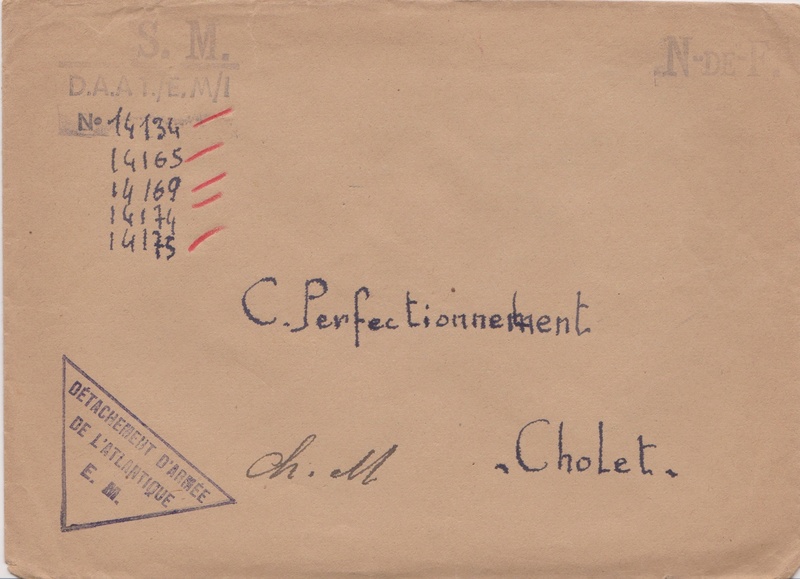 S. M.
N-DE-F.
D.A.A T./E.M/1
No 14134
14165
14169
14174
14175
C. Perfectionnement
DÉTACHEMENT D'ARMÉE
DE L'ATLANTIQUE
E. M.
Ch. M
- Cholet -